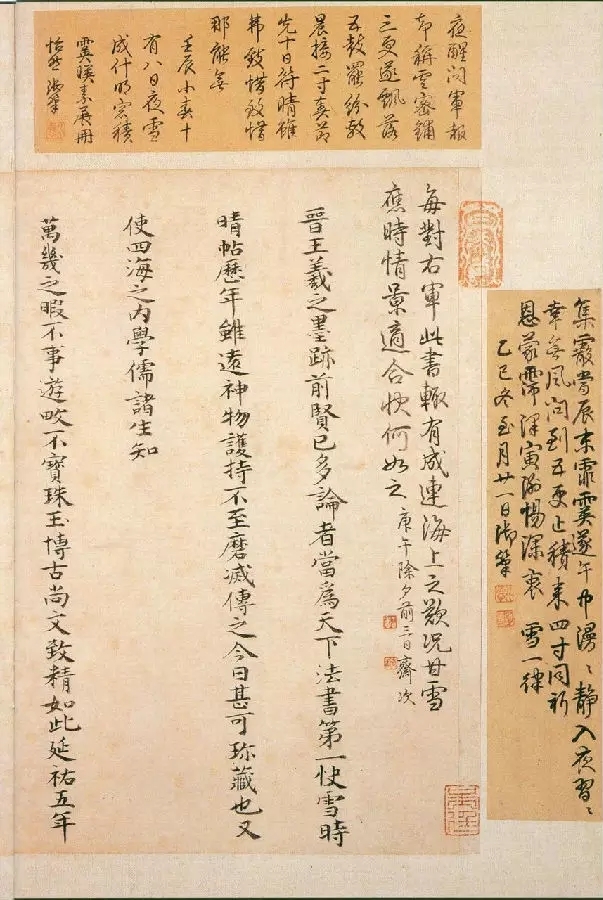 集霰當辰末霏霙遂午中漫〻靜入夜習〻
幸無風問到五更止積來四寸同祈
恩蒙霈澤寅惕深衷 雪一律
乙巳冬至月廿一日御筆
夜醒問軍報
却稱雲密鋪
三更遂飄落
五鼓罷紛敷
晨接二寸奏節
先十日符晴雖
弗致惜致惜
那能無
壬辰小春十
有八日夜雪
成什明窓積
霙暎素展冊
怡然 御筆
每對右軍此書輙有成連海上之歎況雪
應時情景適合快何如之 庚午除夕前三日齋次
晉王羲之墨跡前賢已多論者當爲天下法書第一快雪時
晴帖歷年雖遠神物護持不至磨滅傳之今日甚可珎藏也又
使四海之內學儒諸生知
萬幾之暇不事遊畋不寶珠玉博古尚文致精如此延祐五年